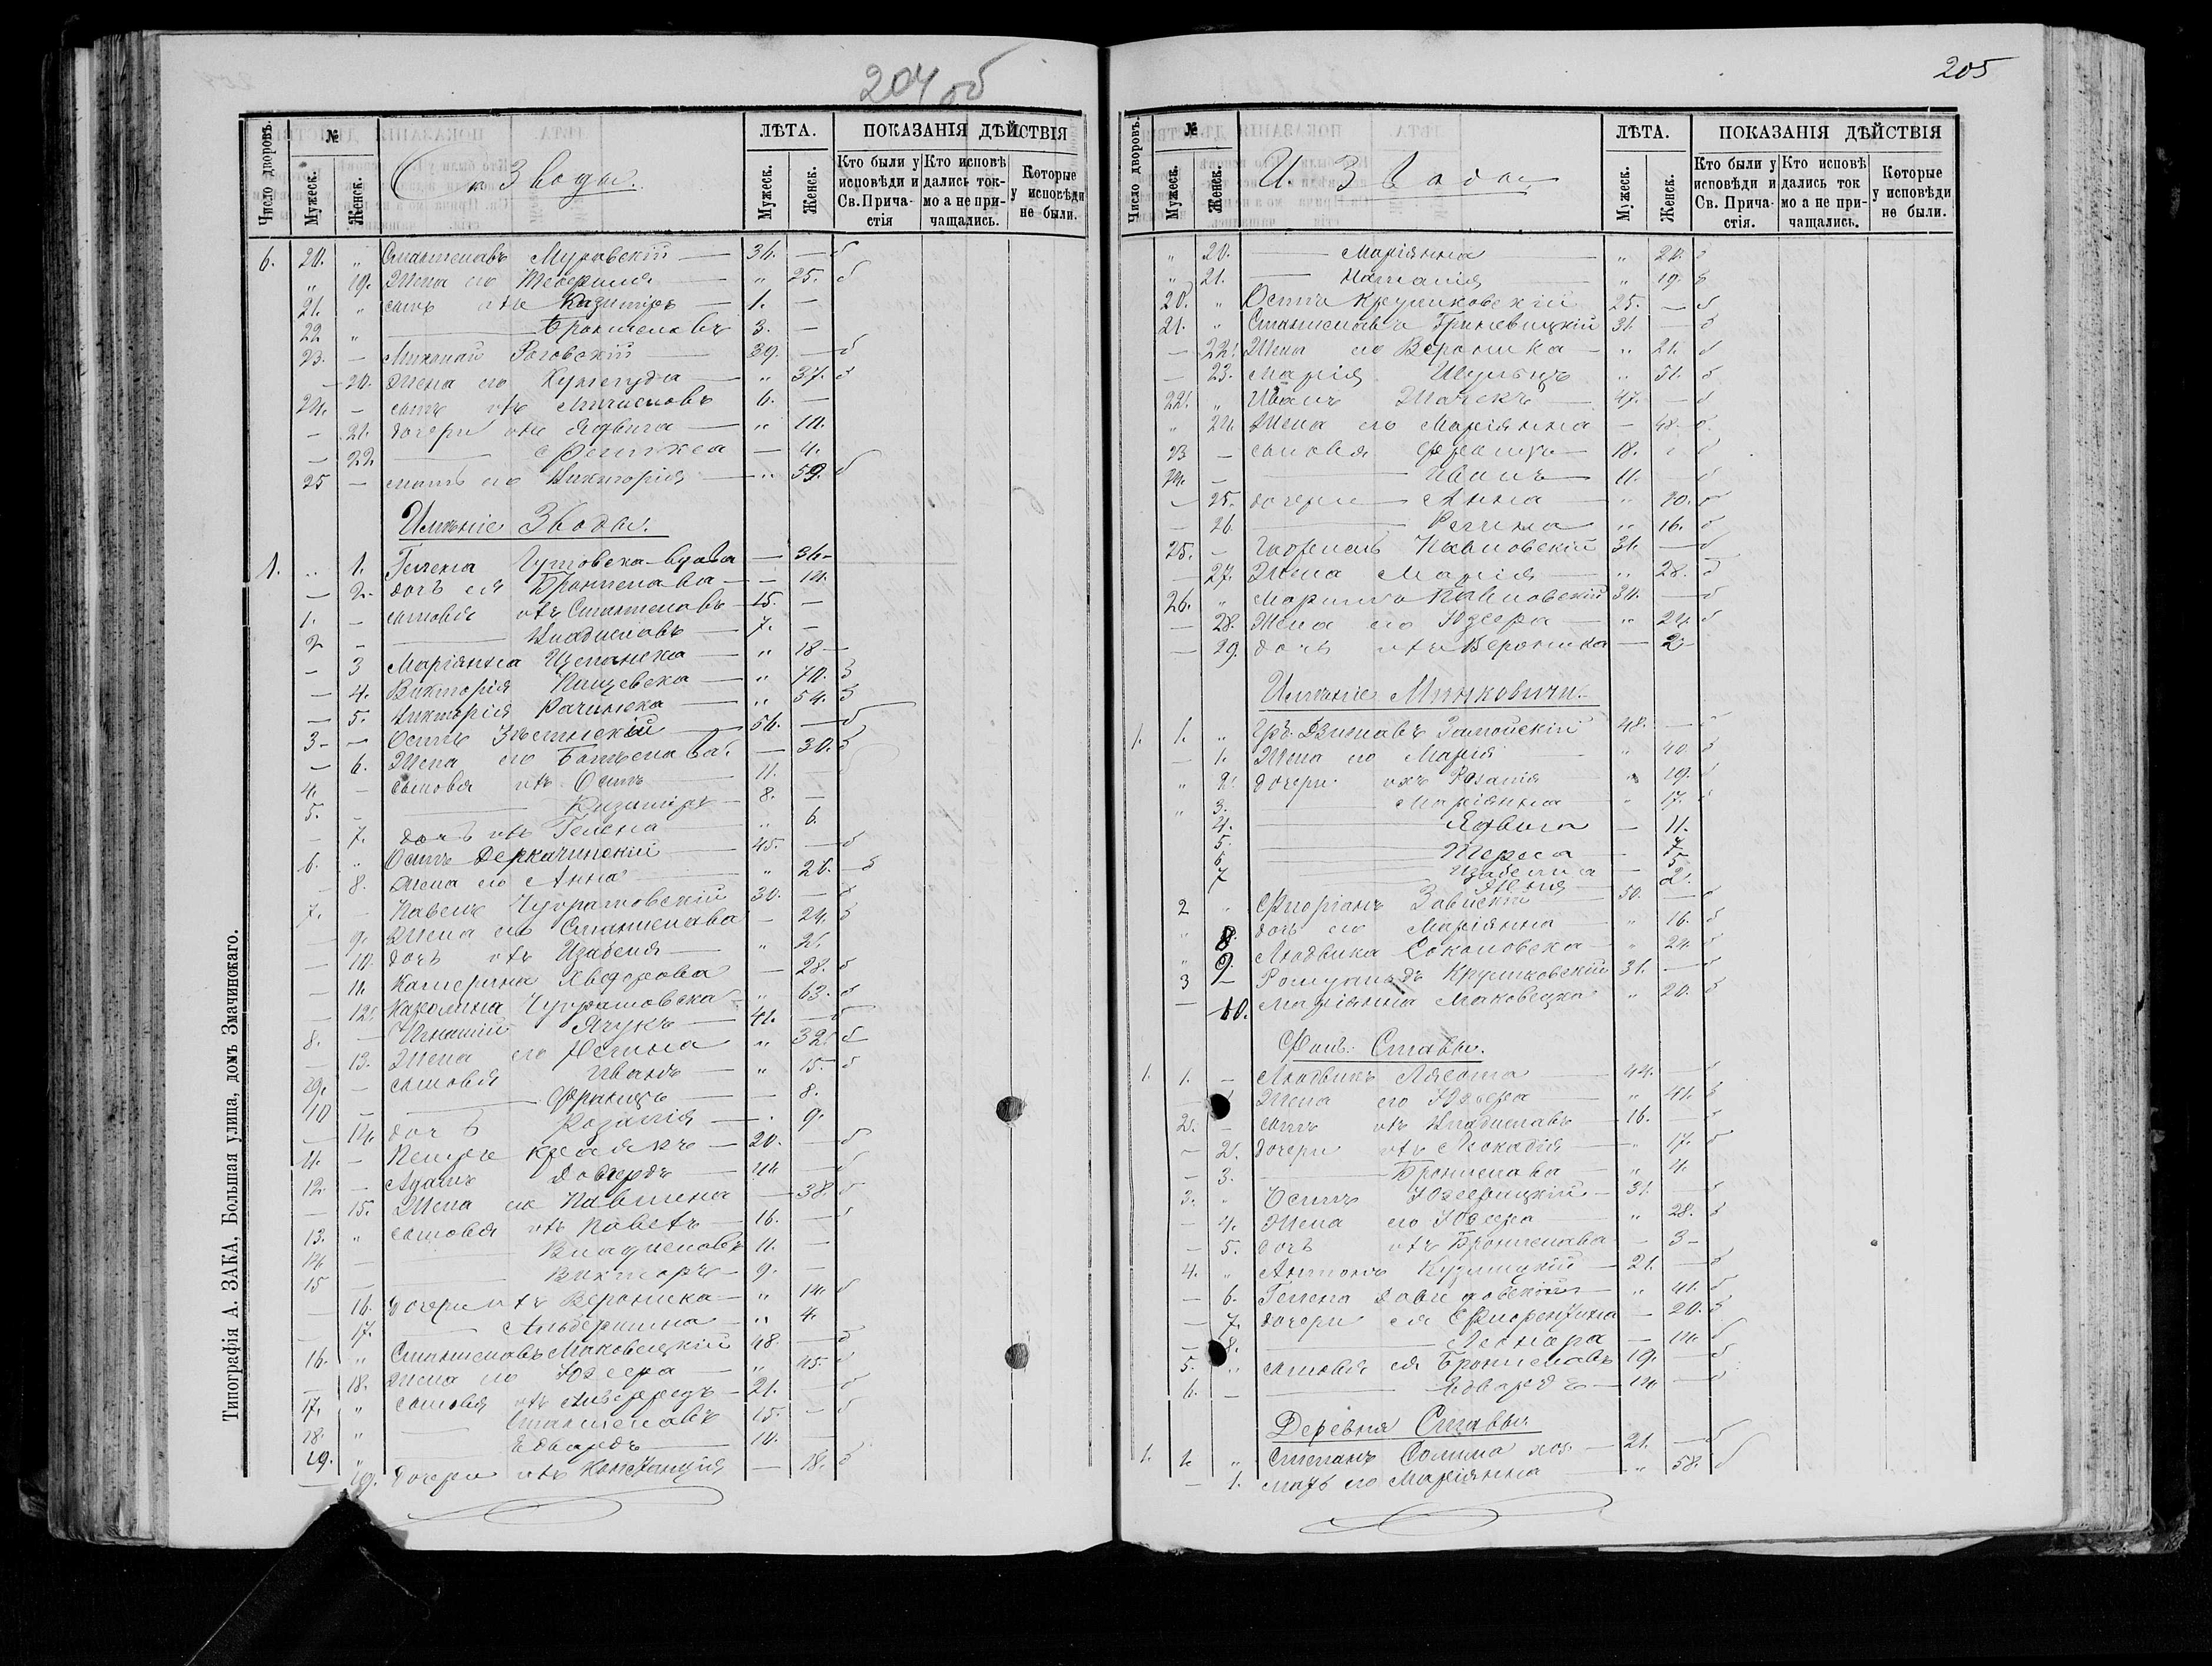 204 об
Число дворовъ.
№
Мужеск.
Женск.
Ок Зводы.
ЛѢТА.
Мужеск.
Женск.
ПОКАЗАНІЯ ДѢЙСТВІЯ
Кто были у исповѣди и Св. Прича-стія
Кто исповѣ дались ток-мо а не при-чащались.
Которые у исповѣди не были.
6. 20. „ Станиславъ Муравскій — 36. — б
„ 19. Жена его Теофилія „ 25. б
21. „ сынъ ихъ Казимиръ — 1. —
22 „ — Брониславъ 3. —
23. — Михаилъ Роговскій — 39. — б
— 20. Жена его Кунегунда — „ 37. б
24. — сынъ ихъ Мечиславъ 6. —
— 21. дочери ихъ Ядвига — „ 10.
— 22 — Феликса — 4.
25 — мать его Викторія — „ 59. б
Имѣніе Зводы.
1. „ 1. Гелена Гутовска-вдова — 36 —
— 2. дочь ея Бронислава — — 14.
1. — сыновья ихъ Станиславъ — 15. —
2 — — Владиславъ — 7. —
— 3 Маріянна Щепанска — „ 18 —
— 4. Викторія — „ 70. З
— 5. Викторія Рачинска — „ 54. З
3 — — Осипъ — 56. — б
— 6. Жена его Болеслава — 30. б
4. — сыновья ихъ Осипъ 11. —
5. — Казимиръ — 8. —
— 7. дочь ихъ Гелена — „ 6.
6. „ Осипъ Деркачинскій 45. — б
— 8. Жена его Анна „ 26. б
7. — Павелъ 30. — б
— 9. Жена его Станислава — 24. б
— 10. дочь ихъ Изабеля „ 2.
— 11. Катерина Хведорова — 28. б
— 12. Каролина „ 63. б
8. — Игнатій Ячукъ — 41. — б
— 13. Жена его „ 32. б
9. — сыновья Иванъ — „ 15. б
10 — — Францъ — — 8.
— 14. дочь Розалія — „ 9.
11. — 20. — б
12. — Адамъ — 44 — б
— 15. Жена его Павлина — 38. б
13. „ сыновья ихъ Павелъ — 16. — б
14 — — Владиславъ 11. —
15 — Викторъ — 9. —
— 16. дочери ихъ Вероника — „ 14. б
— 17. — Альбертина — „ 4.
16. „ Станиславъ Маковецкій 48. — б
— 18. Жена его Юзефа — „ 45. б
17. „ сыновья ихъ Альфредъ — 21. — б
18. „ — Станиславъ 15. — б
19. „ — Едвардъ — 10. —
— 19. дочери ихъ Констанція — 18. б
Типографія А. ЗАКА, Большая улица, домъ Змачинскаго.
205
Число дворовъ.
№
Мужеск.
Женск.
И Зводы.
ЛѢТА.
Мужеск.
Женск.
ПОКАЗАНІЯ ДѢЙСТВІЯ
Кто были у исповѣди и Св. Прича-стія.
Кто исповѣ дались ток мо а не при-чащались.
Которые у исповѣди не были.
„ 20. — Маріянна — „ 20. б
„ 21. — Наталія „ 19. б
20. „ Осипъ Крушковскій 25. — б
21. „ Станиславъ Гриневицкій 31. — б
— 22. Жена его Вероника — „ 21. б
— 23. Марія Шульцъ „ 51. б
22. „ Иванъ 47. — б
„ 24. Жена его Маріянна — 48. б
23 — сыновья Францъ — 18. „ б
24. — — Иванъ — 11. б
— 25. дочери — Анна — „ 20. б
— 26 — Регина „ 16. б
25. — Павловскій 31. — б
— 27. Жена Марія — „ 28. б
26. „ Павловскій 34. — б
— 28. Жена его Юзефа — „ 24. б
— 29. дочь ихъ Вероника — 2 —
Имѣніе Минковичи.
1. 1. „ Гр. Здзиславъ Замойскій 48. —
— 1. Жена его Марія „ 40. б
„ 2. дочери ихъ Розалія „ 19. б
„ 3. Маріянна — „ 17. б
4. — Ядвига — 11.
5. — Тереса — 7
6 — Изабелла — 5.
7 — 2.
2 „ Флоріанъ 50. — б
„ 8. дочь его Маріянна — „ 16. б
„ 9. Людвика Соколовска — „ 24 б
3 — Ромуальдъ Крушковскій 31. — б
— 10. Маріянна Маковецка „ 20. б
Фол. Ставы.
1. 1. — Людвикъ Лясота — 44. — б
— Жена его Юзефа — „ 41. б
2. — сынъ ихъ Владиславъ — 16. — б
— 2. дочери ихъ Леокадія — „ 17. б
— 3. — Бронислава — „ 11.
3. „ Осипъ 31. — б
— 4. Жена его Юзефа — „ 28. б
— 5. дочь ихъ Бронислава — 3 —
4. „ Антонъ 21. — б
— 6. Гелена „ 41. б
— 7. дочери ея Флорентина — 20. б
— 8. — Леонора — 14. б
5. „ сыновья ея Брониславъ 19. — б
6. — — Едвардъ — 14 — б
Деревня Ставы
1. 1. „ Степанъ хоз. — 21. — б
— 1. мать его Маріянна — „ 58. б